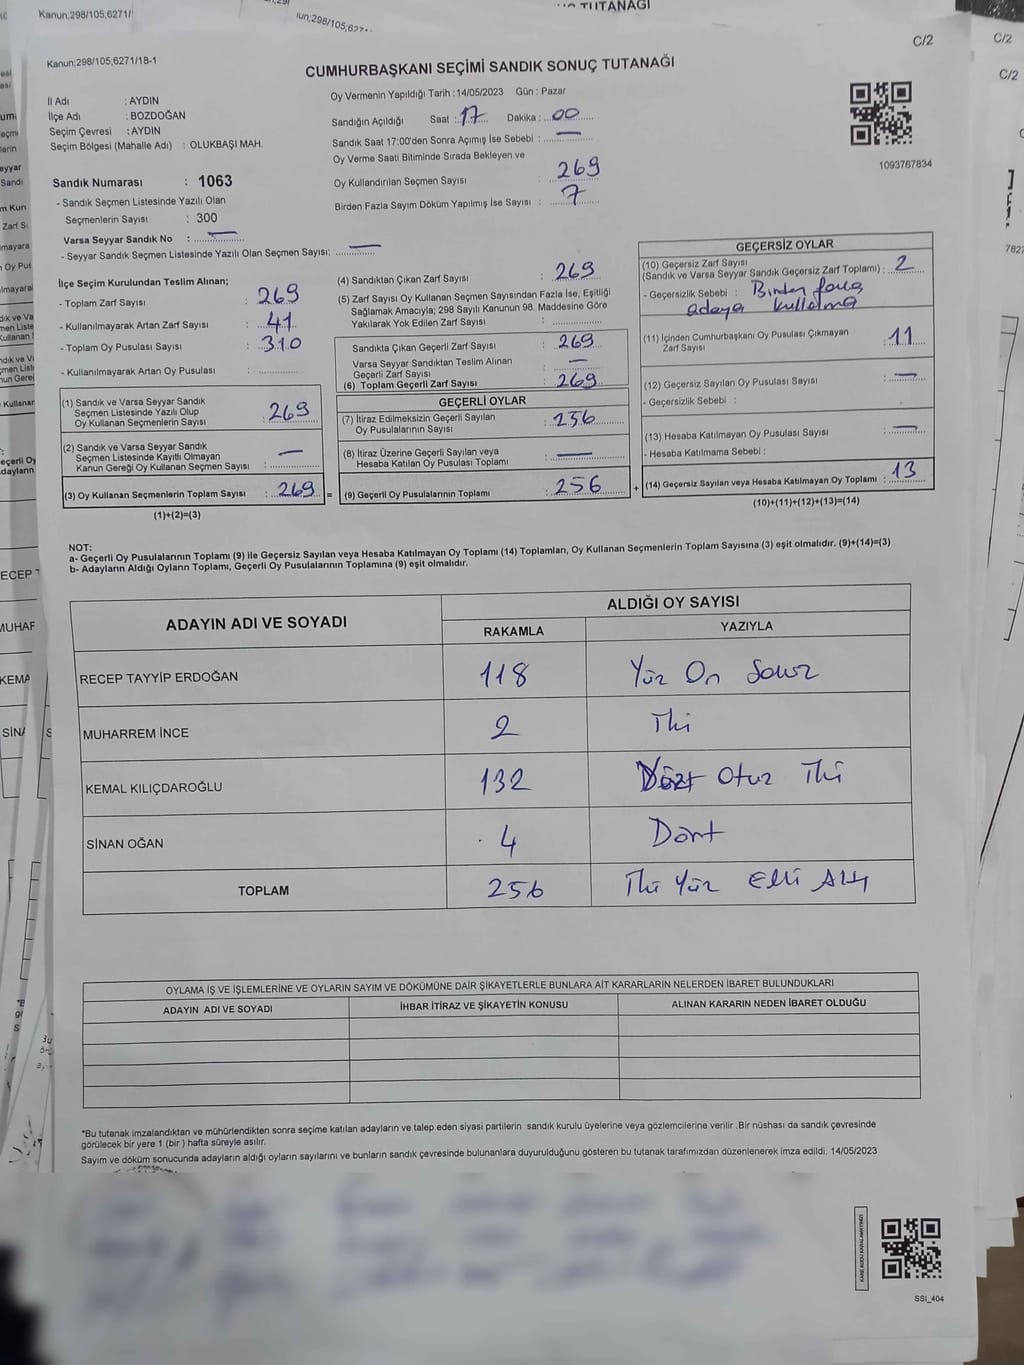 Kanun;298/105;6271/
TUTANAĞI
C/2
C/2
C/2
Kanun;298/105;6271/18-1
CUMHURBAŞKANI SEÇİMİ SANDIK SONUÇ TUTANAĞI
İl Adı : AYDIN
İlçe Adı : BOZDOĞAN
Seçim Çevresi : AYDIN
Seçim Bölgesi (Mahalle Adı) : OLUKBAŞI MAH.
Oy Vermenin Yapıldığı Tarih :14/05/2023 Gün : Pazar
Sandığın Açıldığı Saat : 17 Dakika : 00
Sandık Saat 17:00'den Sonra Açımış İse Sebebi : —
Oy Verme Saati Bitiminde Sırada Bekleyen ve
Oy Kullandırılan Seçmen Sayısı : 269
Birden Fazla Sayım Döküm Yapılmış İse Sayısı : 7
1093767834
Sandık Numarası : 1063
- Sandık Seçmen Listesinde Yazılı Olan
Seçmenlerin Sayısı : 300
Varsa Seyyar Sandık No : —
- Seyyar Sandık Seçmen Listesinde Yazılı Olan Seçmen Sayısı: —
İlçe Seçim Kurulundan Teslim Alınan;
- Toplam Zarf Sayısı : 269
- Kullanılmayarak Artan Zarf Sayısı : 41
- Toplam Oy Pusulası Sayısı : 310
- Kullanılmayarak Artan Oy Pusulası :
(1) Sandık ve Varsa Seyyar Sandık
Seçmen Listesinde Yazılı Olup
Oy Kullanan Seçmenlerin Sayısı : 269
(2) Sandık ve Varsa Seyyar Sandık
Seçmen Listesinde Kayıtlı Olmayan
Kanun Gereği Oy Kullanan Seçmen Sayısı : —
(3) Oy Kullanan Seçmenlerin Toplam Sayısı : 269 =
(1)+(2)=(3)
(4) Sandıktan Çıkan Zarf Sayısı : 269
(5) Zarf Sayısı Oy Kullanan Seçmen Sayısından Fazla İse, Eşitliği
Sağlamak Amacıyla; 298 Sayılı Kanunun 98. Maddesine Göre
Yakılarak Yok Edilen Zarf Sayısı :
Sandıkta Çıkan Geçerli Zarf Sayısı : 269
Varsa Seyyar Sandıktan Teslim Alınan
Geçerli Zarf Sayısı : —
(6) Toplam Geçerli Zarf Sayısı : 269
GEÇERLİ OYLAR
(7) İtiraz Edilmeksizin Geçerli Sayılan
Oy Pusulalarının Sayısı : 256
(8) İtiraz Üzerine Geçerli Sayılan veya
Hesaba Katılan Oy Pusulası Toplamı : —
(9) Geçerli Oy Pusulalarının Toplamı : 256 +
GEÇERSİZ OYLAR
(10) Geçersiz Zarf Sayısı
(Sandık ve Varsa Seyyar Sandık Geçersiz Zarf Toplamı) : 2
- Geçersizlik Sebebi : Birden fazla
adaya kullanma
(11) İçinden Cumhurbaşkanı Oy Pusulası Çıkmayan
Zarf Sayısı : 11
(12) Geçersiz Sayılan Oy Pusulası Sayısı : —
- Geçersizlik Sebebi :
(13) Hesaba Katılmayan Oy Pusulası Sayısı : —
- Hesaba Katılmama Sebebi :
(14) Geçersiz Sayılan veya Hesaba Katılmayan Oy Toplamı : 13
(10)+(11)+(12)+(13)=(14)
NOT:
a- Geçerli Oy Pusulalarının Toplamı (9) ile Geçersiz Sayılan veya Hesaba Katılmayan Oy Toplamı (14) Toplamları, Oy Kullanan Seçmenlerin Toplam Sayısına (3) eşit olmalıdır. (9)+(14)=(3)
b- Adayların Aldığı Oyların Toplamı, Geçerli Oy Pusulalarının Toplamına (9) eşit olmalıdır.
ADAYIN ADI VE SOYADI
ALDIĞI OY SAYISI
RAKAMLA YAZIYLA
RECEP TAYYİP ERDOĞAN 118 Yüz On Sekiz
MUHARREM İNCE 2 İki
KEMAL KILIÇDAROĞLU 132 Otuz İki
SİNAN OĞAN 4 Dört
TOPLAM 256 İki Yüz Elli Altı
OYLAMA İŞ VE İŞLEMLERİNE VE OYLARIN SAYIM VE DÖKÜMÜNE DAİR ŞİKAYETLERLE BUNLARA AİT KARARLARIN NELERDEN İBARET BULUNDUKLARI
ADAYIN ADI VE SOYADI İHBAR İTİRAZ VE ŞİKAYETİN KONUSU ALINAN KARARIN NEDEN İBARET OLDUĞU
*Bu tutanak imzalandıktan ve mühürlendikten sonra seçime katılan adayların ve talep eden siyasi partilerin sandık kurulu üyelerine veya gözlemcilerine verilir .Bir nüshası da sandık çevresinde
görülecek bir yere 1 (bir ) hafta süreyle asılır.
Sayım ve döküm sonucunda adayların aldığı oyların sayılarını ve bunların sandık çevresinde bulunanlara duyurulduğunu gösteren bu tutanak tarafımızdan düzenlenerek imza edildi. 14/05/2023
KARE KODU KARALAMAYINIZ!
SSİ_404